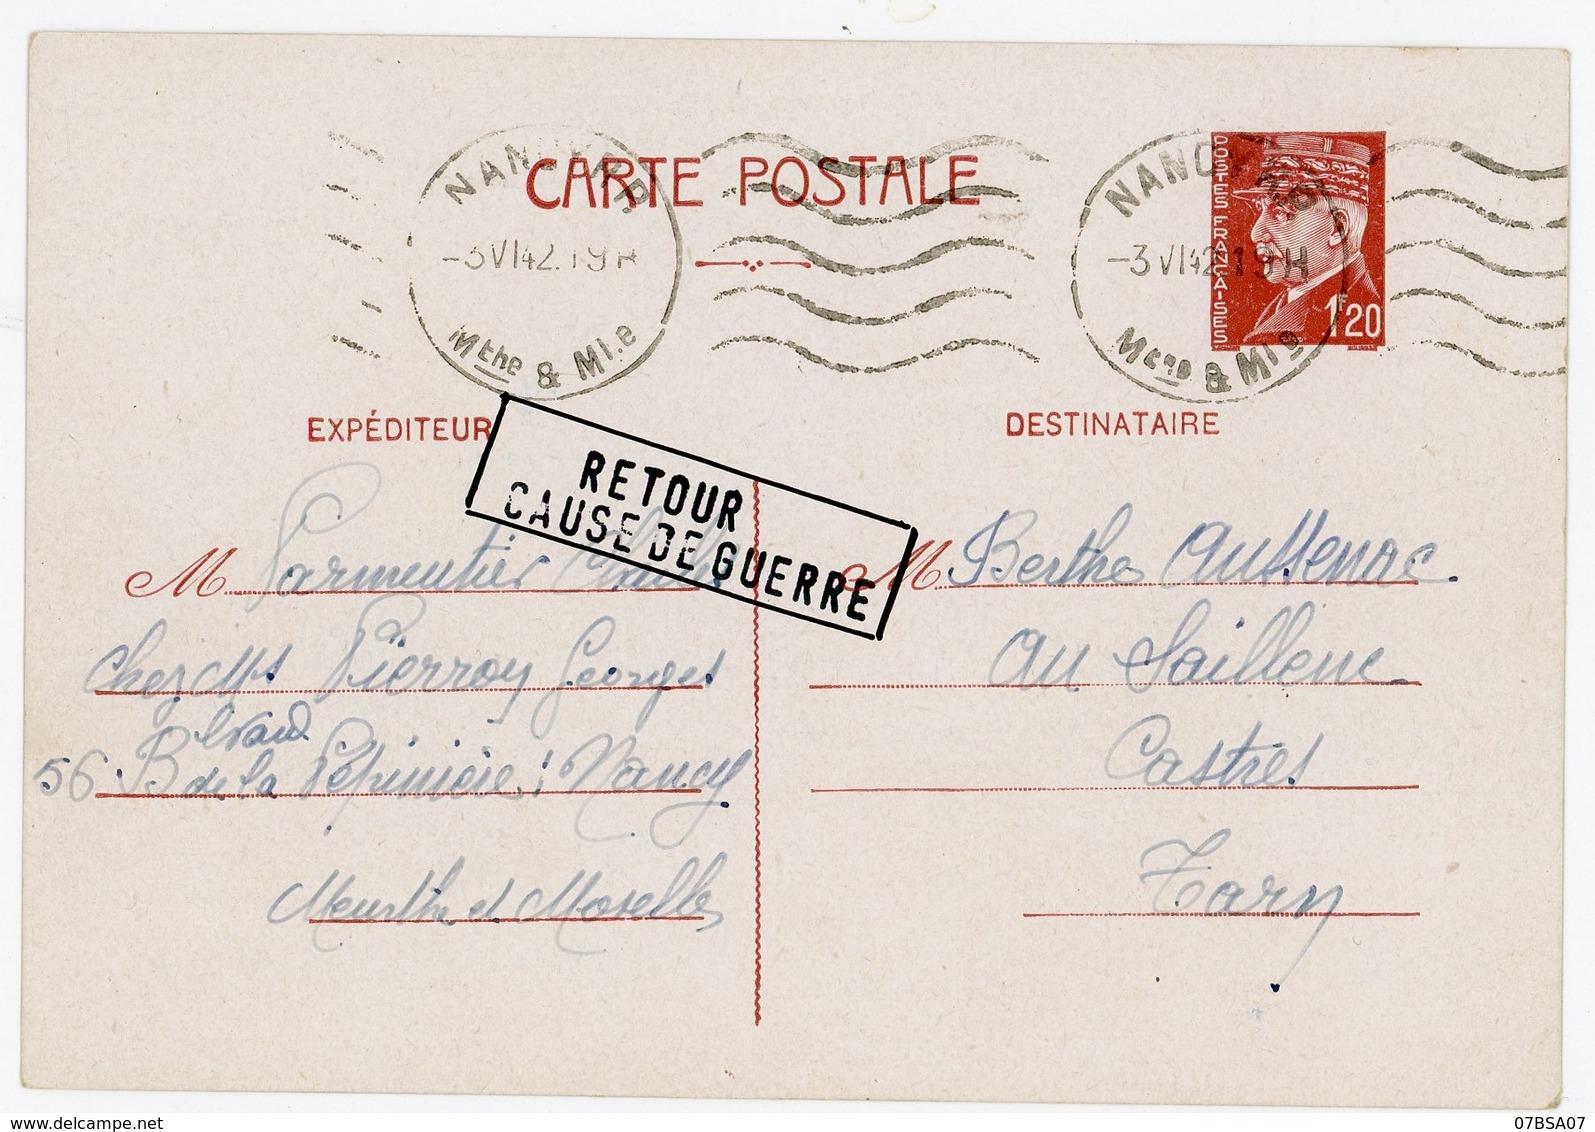 CARTE POSTALE
NANCY R.P.
-3 VI 42. 19 H
Mthe & Ml.e
NANCY R.P.
-3 VI 42 19 H
Mthe & Mle
POSTES FRANÇAISES
1F20
EXPÉDITEUR
RETOUR
CAUSE DE GUERRE
M Parmentier
chez Mr Pierroy Georges
56 Bd de la Pépinière : Nancy
Meurthe et Moselle
DESTINATAIRE
M Berthe Aussenac
Au Saillenc
Castres
Tarn
07BSA07
delcampe.net